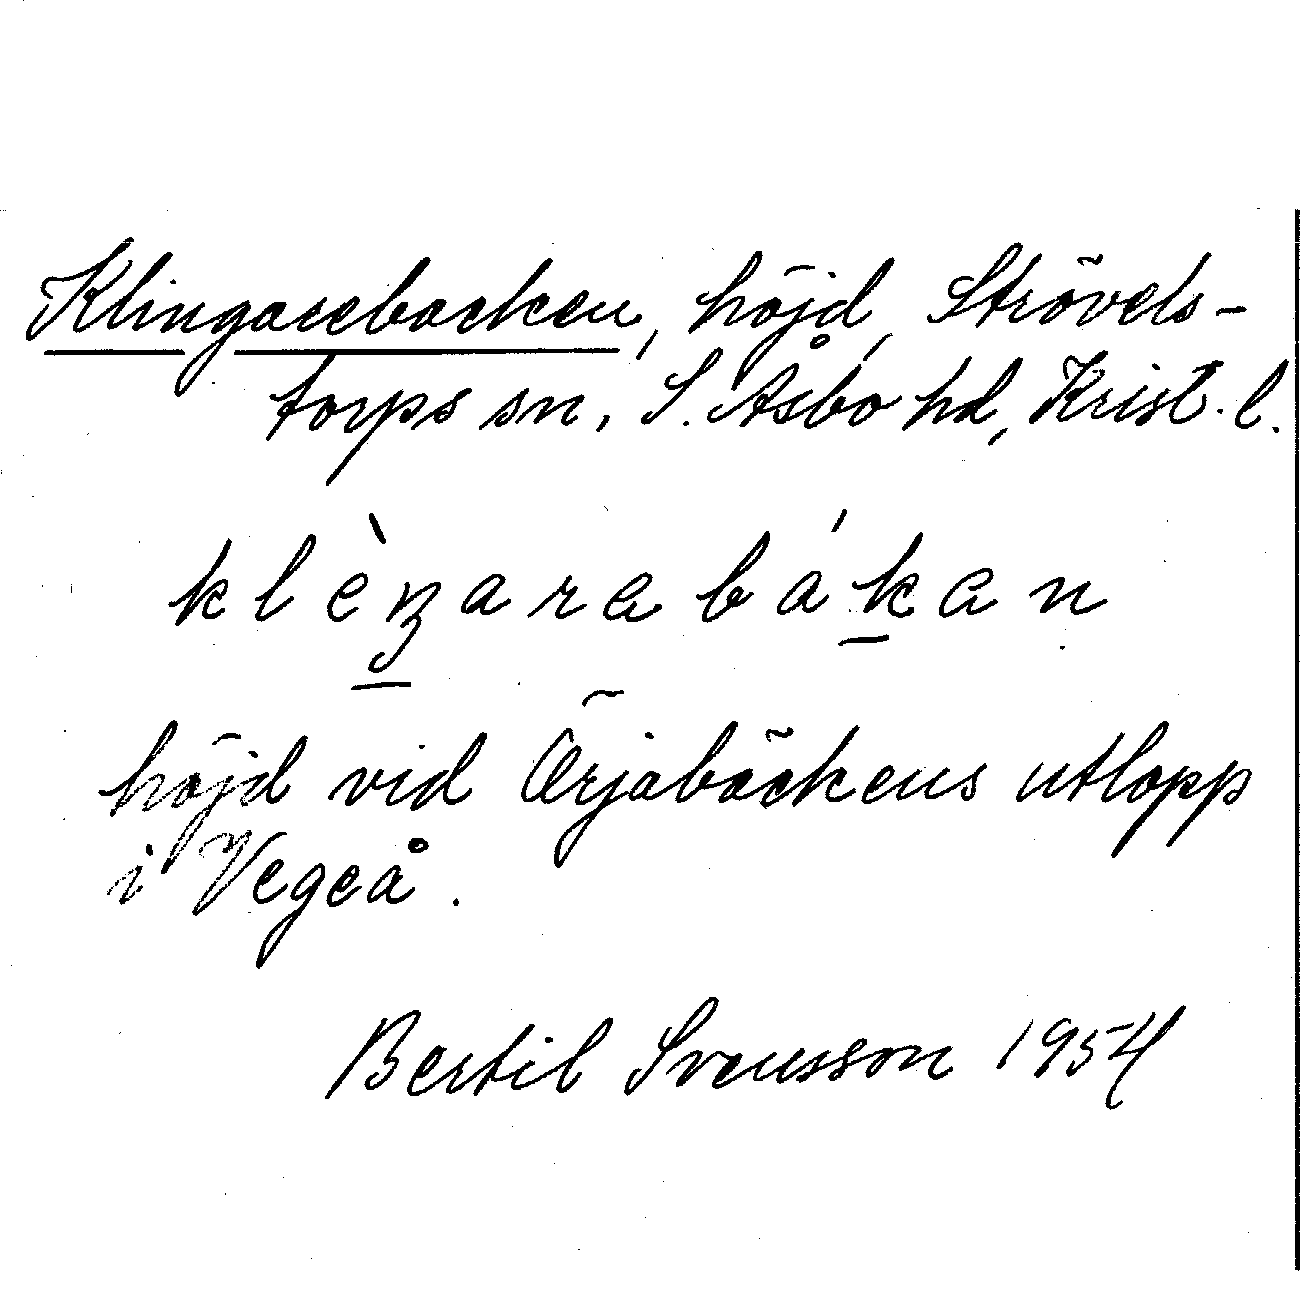 Klingarebacken, höjd, Strövels-
torps sn, S. Åsbo hd, Krist. l.
klèŋarabákan
höjd vid Örjabäckens utlopp
i Vegeå.
Bertil Svensson 1954